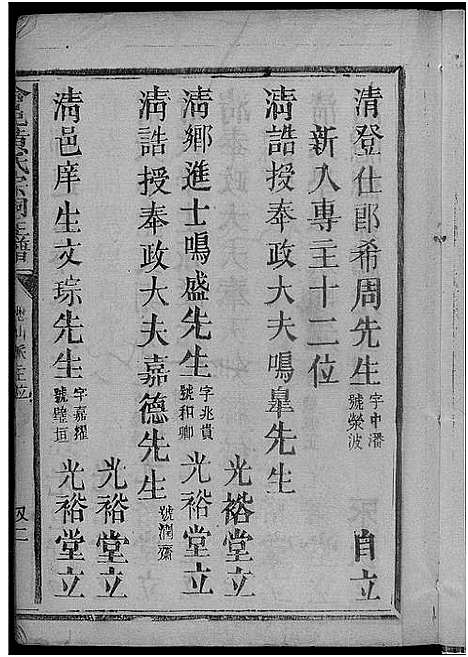 清登仕郎希周先生 字中潘 號榮波 自立
新入專主十二位
清誥授奉政大夫鳴皐先生 光裕堂立
清鄉進士鳴盛先生 字兆貴 號和卿 光裕堂立
清誥授奉政大夫嘉德先生 號潤齋 光裕堂立
清邑庠生文琮先生 字嘉耀 號璧垣 光裕堂立
黃氏宗祠主譜